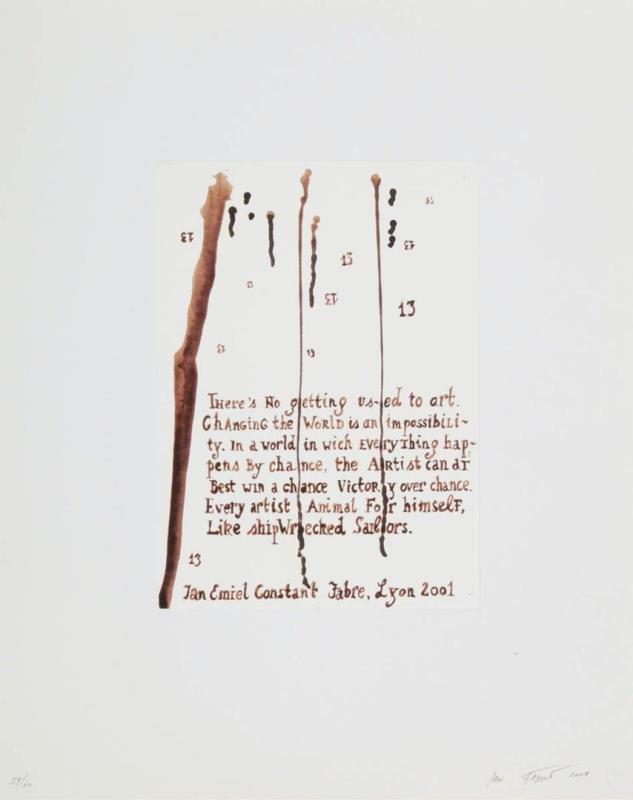 13
13
13
13
13
13
13
13
13
13
There's No getting us-ed to art.
Changing the World is an impossibili-
ty. In a world in wich Everything hap-
pens By chance, the Artist can at
Best win a chance Victory over chance.
Every artist Animal For himself,
Like shipWrecked Sailors.
13
Jan Emiel Constant Fabre, Lyon 2001